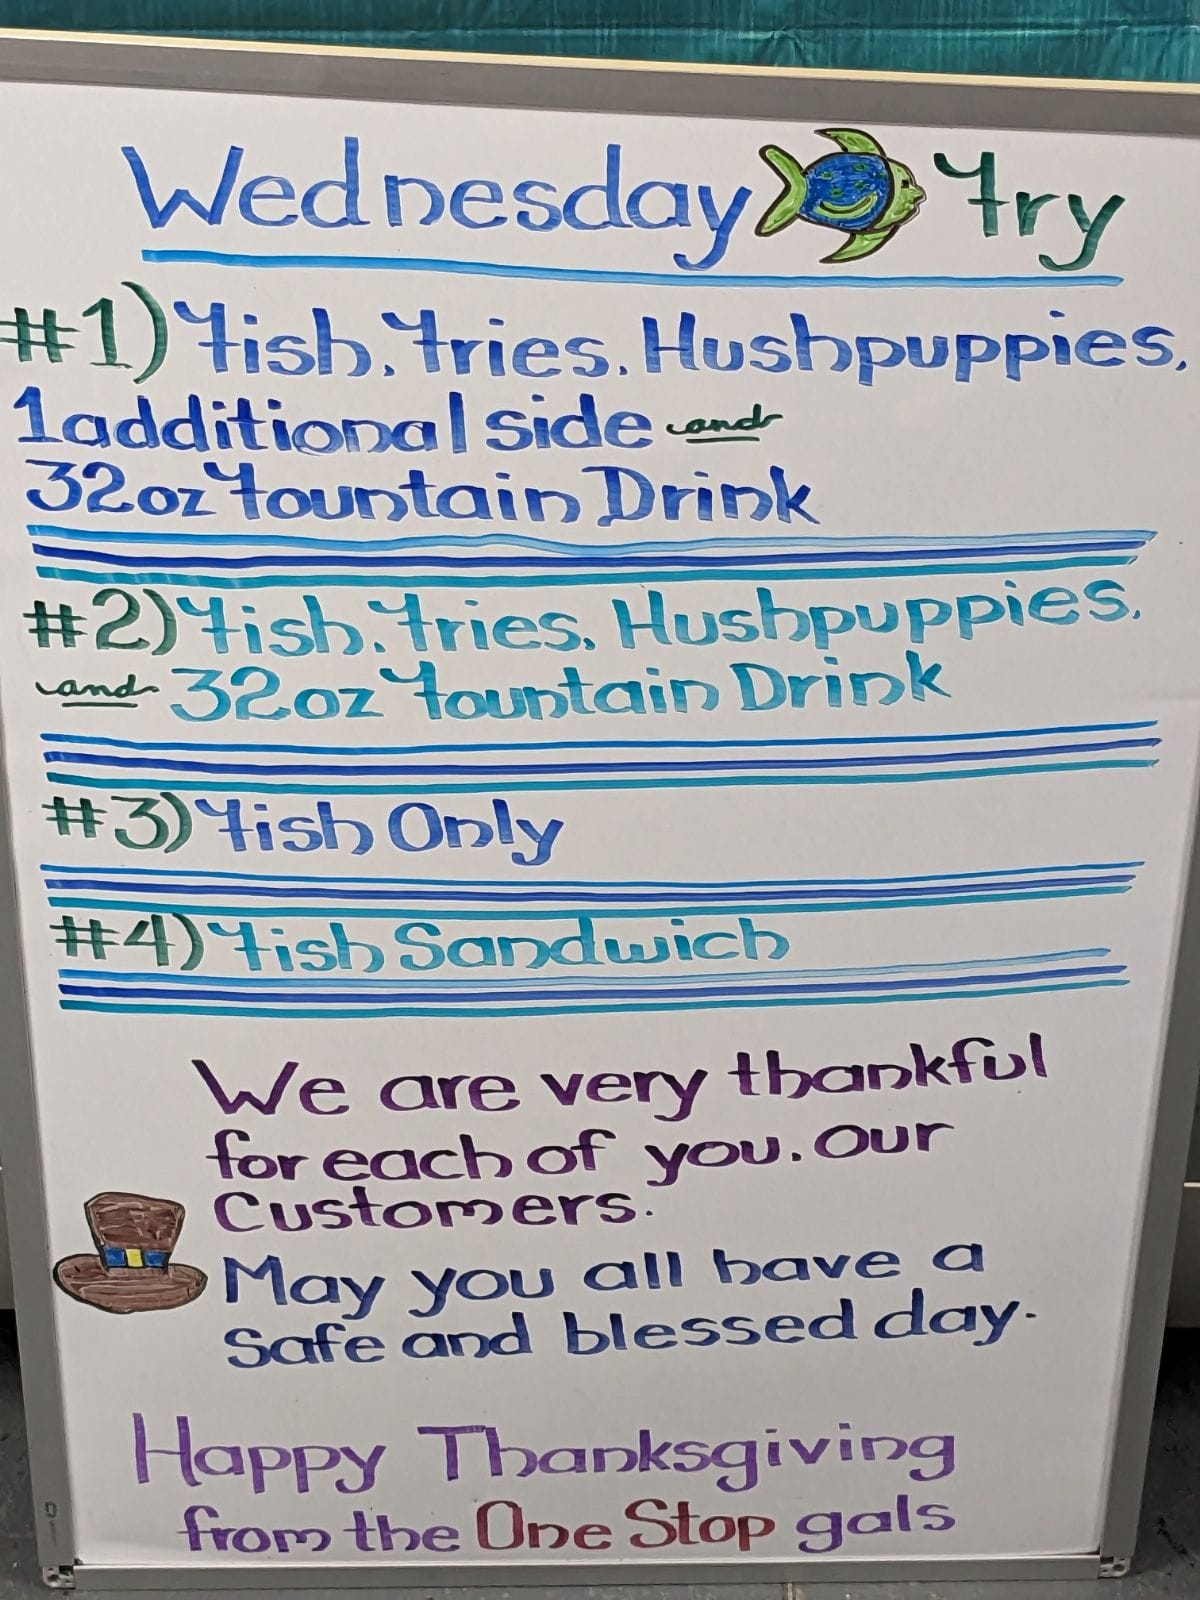 Wednesday Fry
#1) Fish, Fries, Hushpuppies,
1 additional side and
32oz Fountain Drink
#2) Fish, Fries, Hushpuppies,
and 32oz Fountain Drink
#3) Fish Only
#4) Fish Sandwich
We are very thankful
for each of you, our
Customers.
May you all have a
Safe and blessed day.
Happy Thanksgiving
from the One Stop gals